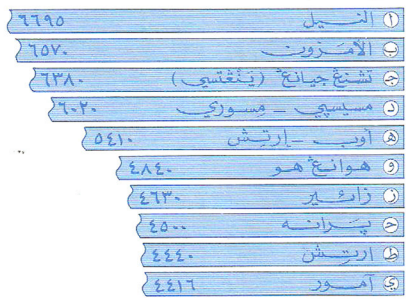 أ النيل ٦٦٩٥
ب الأمَزون ٦٥٧٠
ج تشنغ جيانغ (يَنْغْتسي) ٦٣٨٠
د مسيسيپي - مِسوري ٦٠٢٠
ه أوب - إرتش ٥٤١٠
و هوانغ هو ٤٨٤٠
ز زائير ٤٦٣٠
ح پَرانه ٤٥٠٠
ط ارتش ٤٤٤٠
ي آمور ٤٤١٦